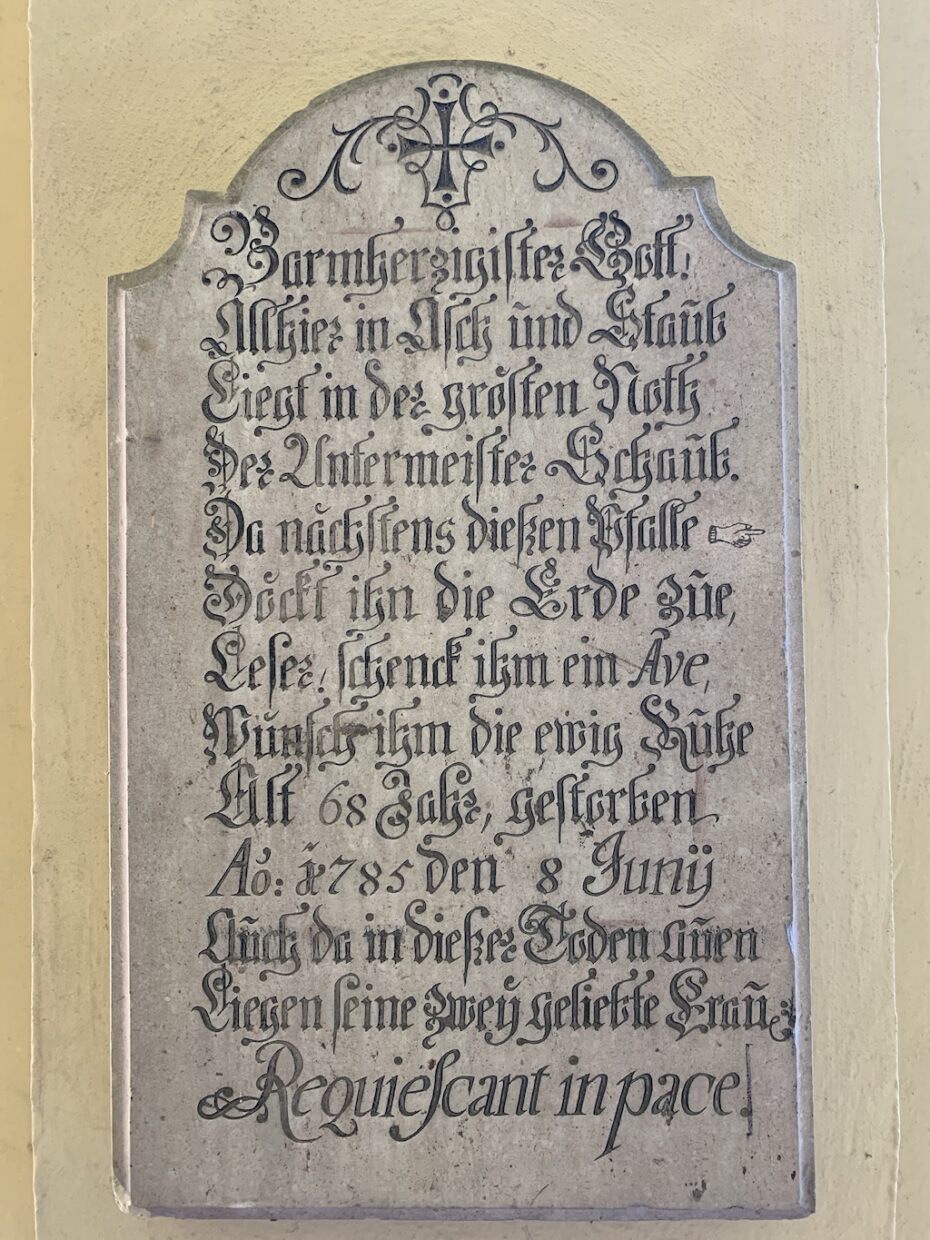 Barmherzigister Gott!
Alhier in Asch und Staub
Liegt in der grösten Noth
Der Untermeister Schaub.
Da nächstens dießen Pfalle ☞
Döckt ihn die Erde zue,
Leser! schenck ihm ein Ave,
Wünsch ihm die ewig Ruhe
Alt 68 Jahr, gestorben
Aö: 1785 den 8 Junÿ
Auch da in dießer Toden auen
Liegen seine zweÿ geliebte Frau:
Requiescant in pace!